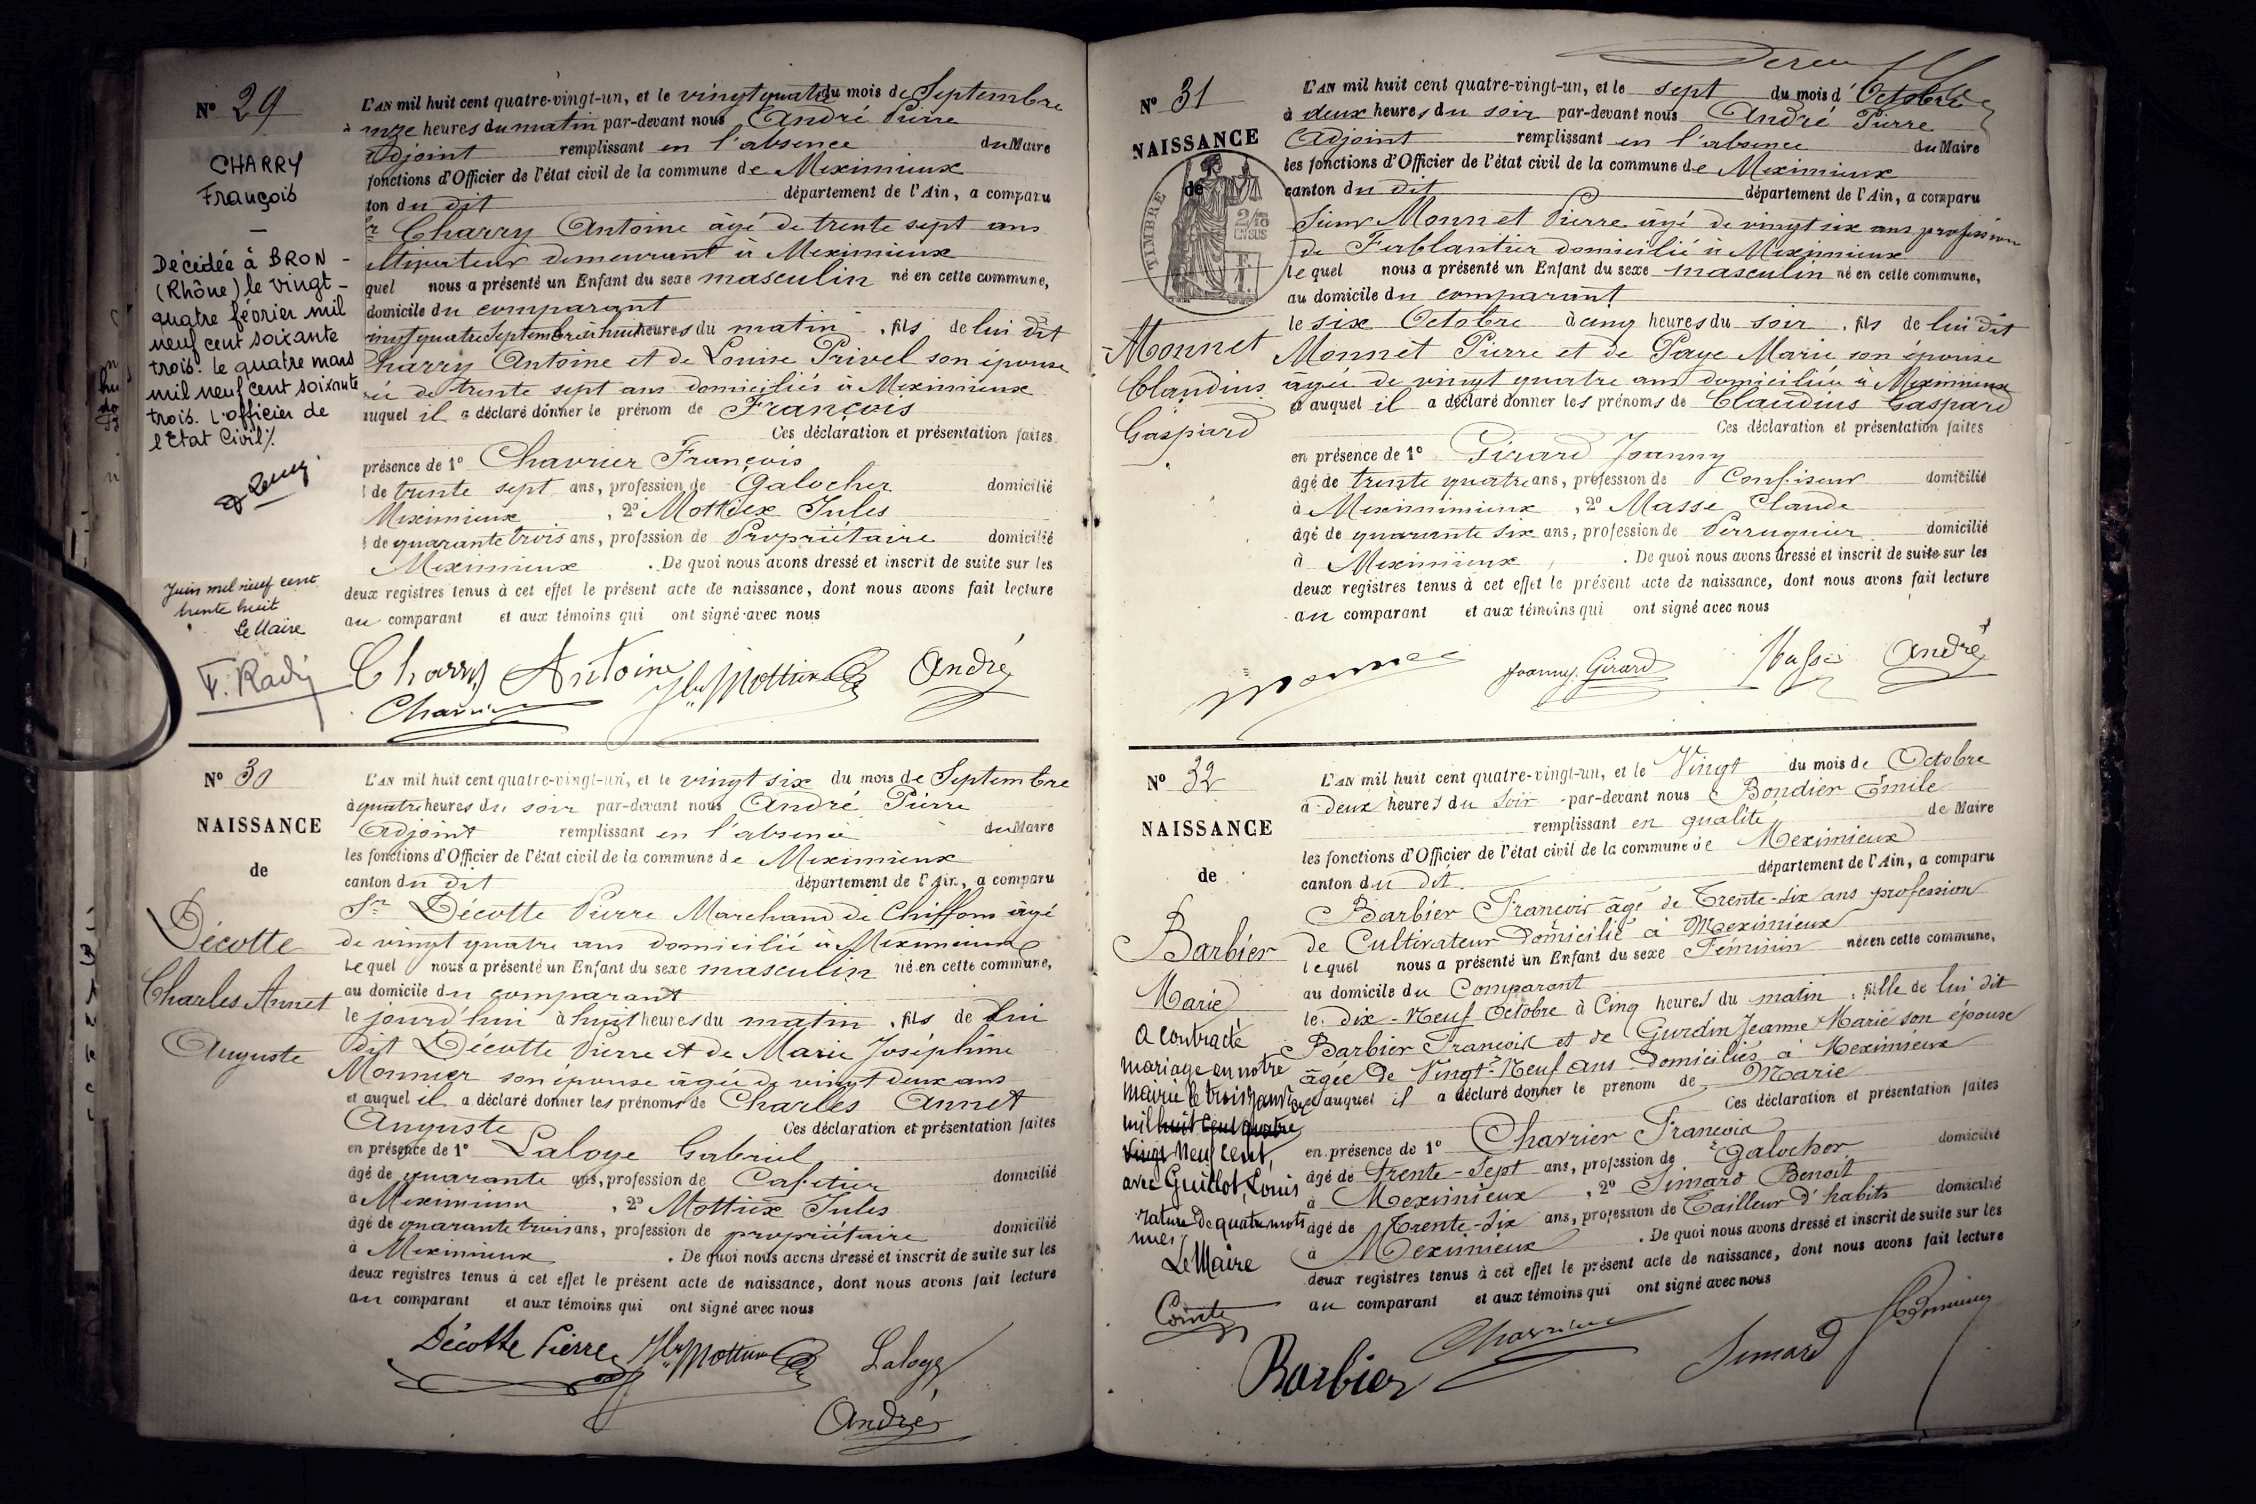 Nº 29
CHARRY
François
Décédée à BRON -
(Rhône) le vingt-
quatre février mil
neuf cent soixante
trois. le quatre mars
mil neuf cent soixante
trois. L'officier de
l'Etat Civil/.
Juin mil neuf cent
trente huit
Le Maire
L'AN mil huit cent quatre-vingt-un, et le vingt quatre du mois de Septembre
à onze heures du matin par-devant nous André Pierre
Adjoint remplissant en l'absence du Maire
fonctions d'Officier de l'état civil de la commune de Meximieux
ton du dit département de l'Ain, a comparu
Sr Charry Antoine âgé de trente sept ans
ltivateur demeurant à Meximieux
quel nous a présenté un Enfant du sexe masculin né en cette commune,
domicile du comparant
vingt quatre Septembre à huit heures du matin, fils de lui dit
Charry Antoine et de Louise Privel son épouse
ée de trente sept ans domiciliés à Meximieux
auquel il a déclaré donner le prénom de François
Ces déclaration et présentation faites
présence de 1º Charrier François
de trente sept ans, profession de Galocher domicilié
Meximieux, 2º Mottiex Jules
de quarante trois ans, profession de Propriétaire domicilié
Meximieux. De quoi nous avons dressé et inscrit de suite sur les
deux registres tenus à cet effet le présent acte de naissance, dont nous avons fait lecture
au comparant et aux témoins qui ont signé avec nous
Charry Antoine Mottiex André
Charrier
Nº 30
NAISSANCE
de
Décotte
Charles Annet
Auguste
L'AN mil huit cent quatre-vingt-un, et le vingt six du mois de Septembre
à quatre heures du soir par-devant nous André Pierre
Adjoint remplissant en l'absence du Maire
les fonctions d'Officier de l'état civil de la commune de Meximieux
canton du dit département de l'Ain, a comparu
Sr Décotte Pierre Marchand de Chiffons âgé
de vingt quatre ans domicilié à Meximieux
Lequel nous a présenté un Enfant du sexe masculin né en cette commune,
au domicile du comparant
le jourd'hui à huit heures du matin, fils de lui
dit Décotte Pierre et de Marie Joséphine
Monnier son épouse âgée de vingt deux ans
et auquel il a déclaré donner les prénoms de Charles Annet
Auguste Ces déclaration et présentation faites
en présence de 1º Laloye Gabriel
âgé de quarante ans, profession de Cafetier domicilié
à Meximieux, 2º Mottiex Jules
âgé de quarante trois ans, profession de propriétaire domicilié
à Meximieux. De quoi nous avons dressé et inscrit de suite sur les
deux registres tenus à cet effet le présent acte de naissance, dont nous avons fait lecture
au comparant et aux témoins qui ont signé avec nous
Décotte Pierre Mottiex Laloye
André
Nº 31
NAISSANCE
de
TIMBRE
Monnet
Claudius
Gaspard
L'AN mil huit cent quatre-vingt-un, et le sept du mois d'Octobre
à deux heures du soir par-devant nous André Pierre
Adjoint remplissant en l'absence du Maire
les fonctions d'Officier de l'état civil de la commune de Meximieux
canton du dit département de l'Ain, a comparu
Sieur Monnet Pierre âgé de vingt six ans profession
de Ferblantier domicilié à Meximieux
lequel nous a présenté un Enfant du sexe masculin né en cette commune,
au domicile du comparant
le six Octobre à cinq heures du soir, fils de lui dit
Monnet Pierre et de Paye Marie son épouse
agée de vingt quatre ans domiciliée à Meximieux
et auquel il a déclaré donner les prénoms de Claudius Gaspard
Ces déclaration et présentation faites
en présence de 1º Girard Joanny
âgé de trente quatre ans, profession de Confiseur domicilié
à Meximimieux, 2º Masse Claude
âgé de quarante six ans, profession de Perruquier domicilié
à Meximieux. De quoi nous avons dressé et inscrit de suite sur les
deux registres tenus à cet effet le présent acte de naissance, dont nous avons fait lecture
au comparant et aux témoins qui ont signé avec nous
Monnet Joanny Girard Masse André
Nº 32
NAISSANCE
de
Barbier
Marie
A contracté
mariage en notre
mairie le trois janvier
mil huit cent quatre
vingt neuf cent,
avec Guillot, Louis
rature de quatre mots
nuls
Le Maire
Comte
L'AN mil huit cent quatre-vingt-un, et le Vingt du mois de Octobre
à deux heures du soir par-devant nous Boudier Émile
remplissant en qualité de Maire
les fonctions d'Officier de l'état civil de la commune de Meximieux
canton du dit département de l'Ain, a comparu
Barbier François âgé de Trente-six ans profession
de Cultivateur Domicilié à Meximieux
lequel nous a présenté un Enfant du sexe Féminin née en cette commune,
au domicile du Comparant
le Dix-Neuf Octobre à Cinq heures du matin, fille de lui dit
Barbier François et de Gurdin Jeanne Marie son épouse
âgée de Vingt-Neuf ans Domiciliés à Meximieux
et auquel il a déclaré donner le prénom de Marie
Ces déclaration et présentation faites
en présence de 1º Charrier François
âgé de trente-sept ans, profession de Galocher domicilié
à Meximieux, 2º Simard Benoit
âgé de Trente-six ans, profession de Tailleur d'habits domicilié
à Meximieux. De quoi nous avons dressé et inscrit de suite sur les
deux registres tenus à cet effet le présent acte de naissance, dont nous avons fait lecture
au comparant et aux témoins qui ont signé avec nous
Barbier Charrier Simard